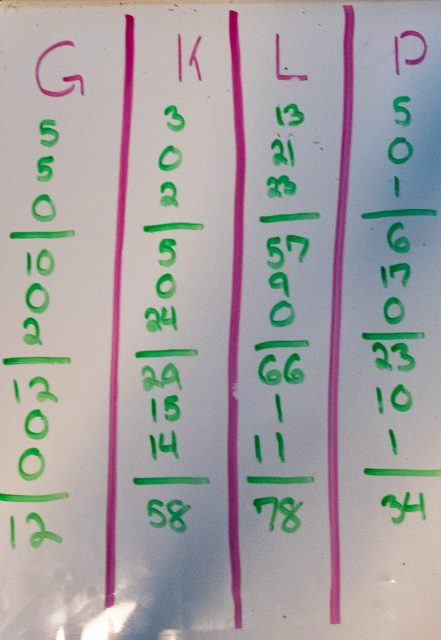 G K L P
5 3 13 5
5 0 21 0
0 2 23 1
10 5 57 6
0 0 9 17
2 24 0 0
12 29 66 23
0 15 1 10
0 14 11 1
12 58 78 34